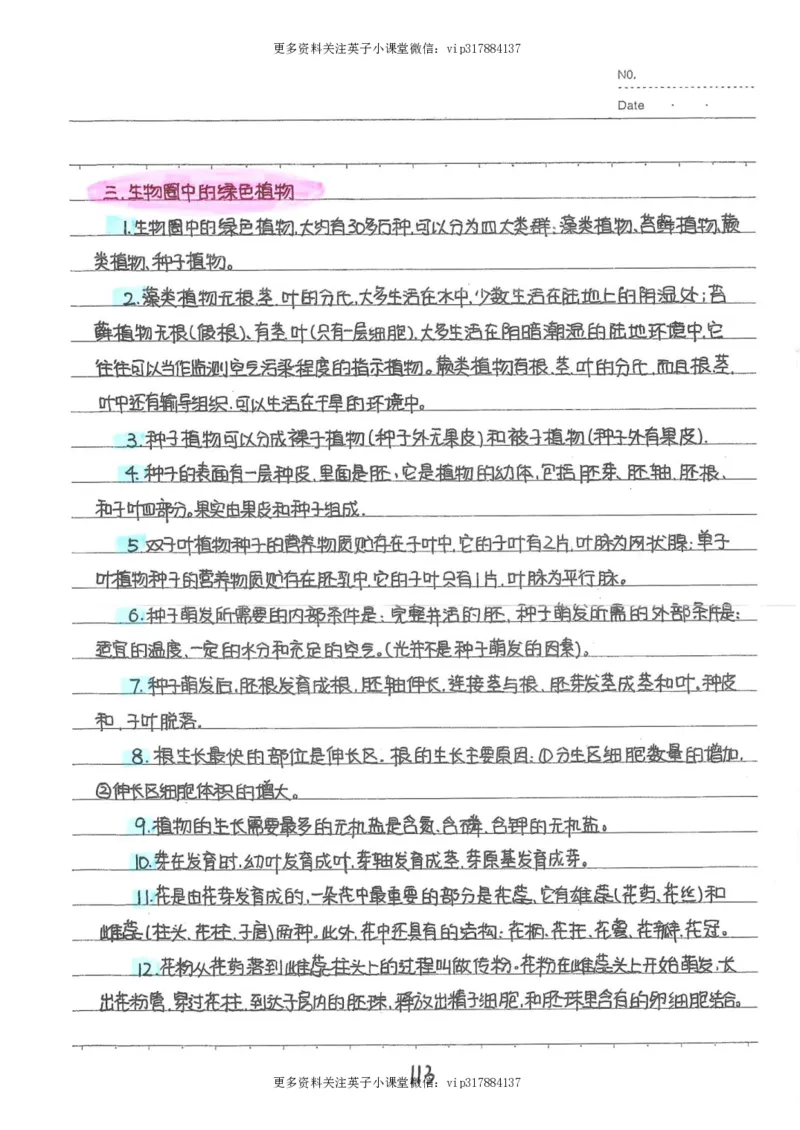 更多资料关注英子小课堂微信：vip317884137
NO.
Date
三.生物圈中的绿色植物
1.生物圈中的绿色植物,大约有30多万种,可以分为四大类群:藻类植物、苔藓植物、蕨
类植物、种子植物。
2.藻类植物无根、茎、叶的分化,大多生活在水中,少数生活在陆地上的阴湿处;苔
藓植物无根(假根)、有茎、叶(只有一层细胞),大多生活在阴暗潮湿的陆地环境中,它
往往可以当作监测空气污染程度的指示植物。蕨类植物有根、茎、叶的分化,而且根、茎、
叶中还有输导组织,可以生活在干旱的环境中。
3.种子植物可以分成裸子植物(种子外无果皮)和被子植物(种子外有果皮).
4.种子的表面有一层种皮,里面是胚,它是植物的幼体,包括胚芽、胚轴、胚根、
和子叶四部分。果实由果皮和种子组成.
5.双子叶植物种子的营养物质贮存在子叶中,它的子叶有2片,叶脉为网状腺;单子
叶植物种子的营养物质贮存在胚乳中,它的子叶只有1片,叶脉为平行脉。
6.种子萌发所需要的内部条件是:完整并活的胚,种子萌发所需的外部条件是:
适宜的温度、一定的水分和充足的空气。(光并不是种子萌发的因素)。
7.种子萌发后,胚根发育成根,胚轴伸长,连接茎与根、胚芽发茎成茎和叶。种皮
和,子叶脱落.
8.根生长最快的部位是伸长区.根的生长主要原因:①分生区细胞数量的增加,
②伸长区细胞体积的增大。
9.植物的生长需要最多的无机盐是含氮、含磷、含钾的无机盐。
10.芽在发育时,幼叶发育成叶,芽轴发育成茎,芽原基发育成芽。
11.花是由花芽发育成的,一朵花中最重要的部分是花蕊,它有雄蕊(花药、花丝)和
雌蕊(柱头、花柱、子房)两种。此外,花中还具有的结构:花柄、花托、花萼、花瓣、花冠。
12.花粉从花药落到雌蕊柱头上的过程叫做传粉。花粉在雌蕊头上开始萌发,长
出花粉管,穿过花柱,到达子房内的胚珠,释放出精子细胞,和胚珠里含有的卵细胞结合。
113
更多资料关注英子小课堂微信：vip317884137